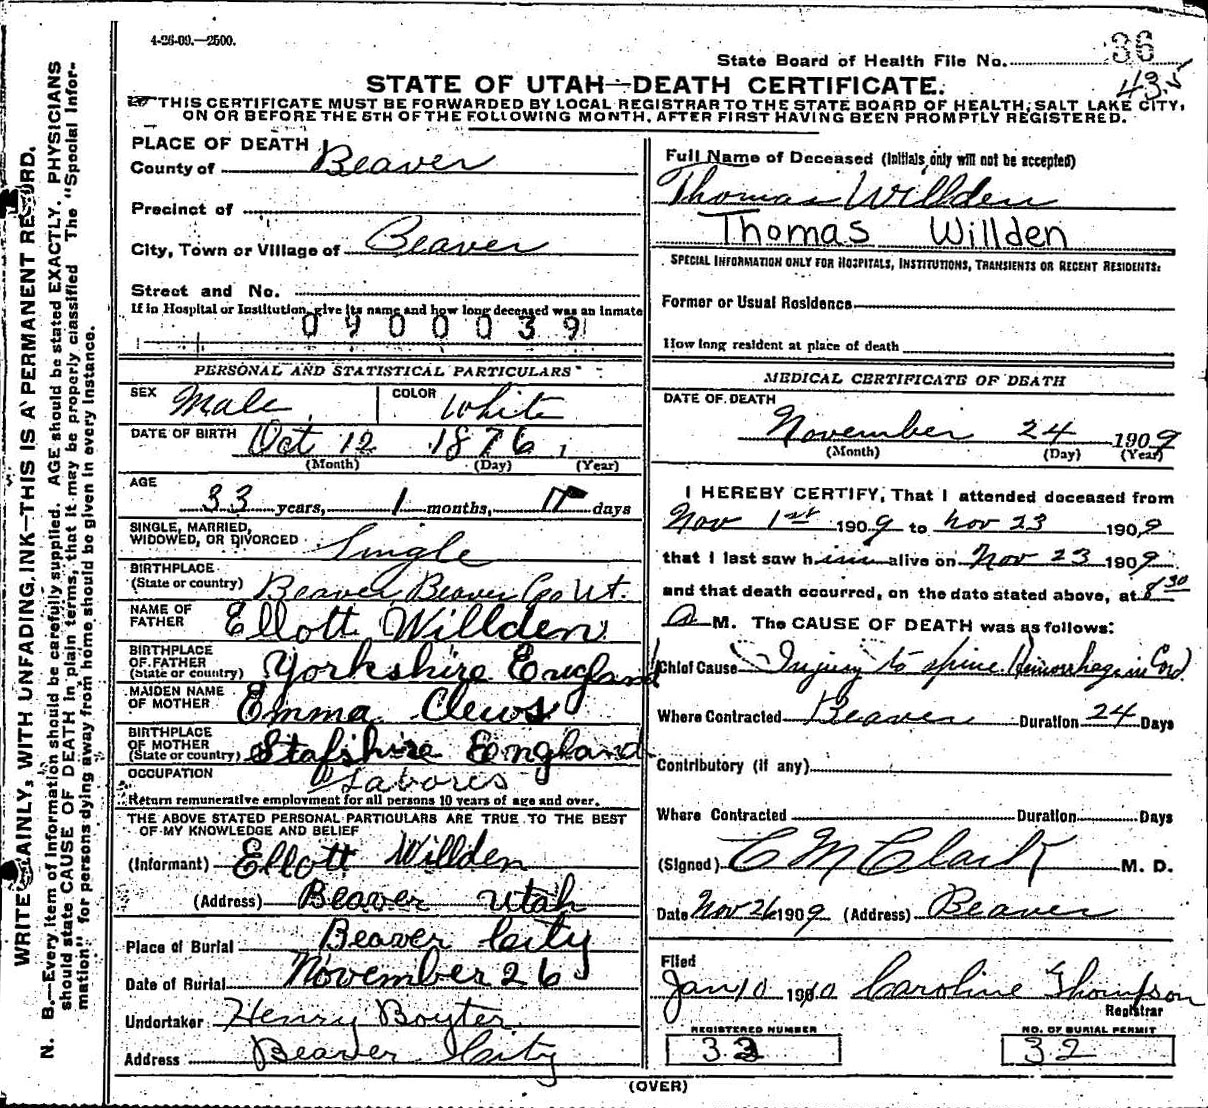 4-26-09.—2500.
State Board of Health File No. 36
43
STATE OF UTAH—DEATH CERTIFICATE.
THIS CERTIFICATE MUST BE FORWARDED BY LOCAL REGISTRAR TO THE STATE BOARD OF HEALTH, SALT LAKE CITY,
ON OR BEFORE THE 5TH OF THE FOLLOWING MONTH, AFTER FIRST HAVING BEEN PROMPTLY REGISTERED.
WRITE PLAINLY, WITH UNFADING INK—THIS IS A PERMANENT RECORD.
N. B.—Every item of information should be carefully supplied. AGE should be stated EXACTLY. PHYSICIANS
should state CAUSE OF DEATH in plain terms, that it may be properly classified. The "Special Infor-
mation" for persons dying away from home should be given in every instance.
PLACE OF DEATH
County of Beaver
Precinct of
City, Town or Village of Beaver
Street and No.
If in Hospital or Institution, give its name and how long deceased was an inmate
0900039
PERSONAL AND STATISTICAL PARTICULARS
SEX Male COLOR White
DATE OF BIRTH Oct 12 1876
(Month) (Day) (Year)
AGE
33 years, 1 months, 17 days
SINGLE, MARRIED,
WIDOWED, OR DIVORCED Single
BIRTHPLACE
(State or country) Beaver Beaver Co Ut.
NAME OF
FATHER Ellott Willden
BIRTHPLACE
OF FATHER
(State or country) Yorkshire England
MAIDEN NAME
OF MOTHER Emma Clews
BIRTHPLACE
OF MOTHER
(State or country) Stafshire England
OCCUPATION Labores
Return remunerative employment for all persons 10 years of age and over.
THE ABOVE STATED PERSONAL PARTICULARS ARE TRUE TO THE BEST
OF MY KNOWLEDGE AND BELIEF
(Informant) Ellott Willden
(Address) Beaver Utah
Place of Burial Beaver City
Date of Burial November 26
Undertaker Henry Boyter
Address Beaver City
Full Name of Deceased (Initials only will not be accepted)
Thomas Willden
Thomas Willden
SPECIAL INFORMATION ONLY FOR HOSPITALS, INSTITUTIONS, TRANSIENTS OR RECENT RESIDENTS:
Former or Usual Residence
How long resident at place of death
MEDICAL CERTIFICATE OF DEATH
DATE OF DEATH
November 24 1909
(Month) (Day) (Year)
I HEREBY CERTIFY, That I attended deceased from
Nov 1st 1909 to Nov 23 1909
that I last saw him alive on Nov 23 1909
and that death occurred, on the date stated above, at 8 30
A M. The CAUSE OF DEATH was as follows:
Chief Cause Injury to spine. Hemorrhage in Cord.
Where Contracted Beaver Duration 24 Days
Contributory (if any)
Where Contracted Duration Days
(Signed) C M Clark M. D.
Date Nov 26 1909 (Address) Beaver
Filed
Jan 10 1910 Caroline Thompson
Registrar
REGISTERED NUMBER
33
NO. OF BURIAL PERMIT
32
(OVER)